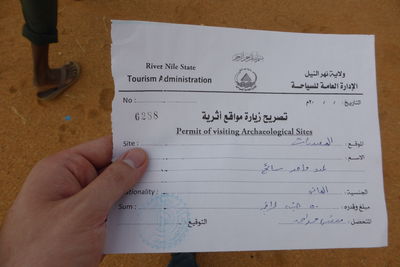 Rivet Nile State
ولاية نهر النيل
Tourism Administration
الإدارة العامة للسياحة
No :
التاريخ :
6288
تصريح زيارة مواقع أثرية
Permit of visiting Archaeological Sites
Site :
الموقع :
الاسم :
عدد واحد سائح
Nationality :
الجنسية :
Sum :
مبلغ وقدره :
التوقيع
المتحصل :